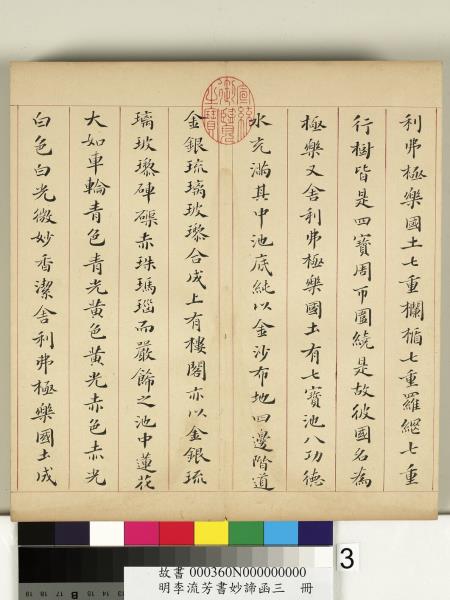 利弗極樂國土七重欄楯七重羅網七重
行樹皆是四寶周帀圍繞是故彼國名為
極樂又舍利弗極樂國土有七寶池八功德
水充滿其中池底純以金沙布地四邊階道
金銀琉璃玻瓈合成上有樓閣亦以金銀琉
璃玻瓈硨磲赤珠瑪瑙而嚴飾之池中蓮花
大如車輪青色青光黃色黃光赤色赤光
白色白光微妙香潔舍利弗極樂國土成
宣統御覽之寶
3
故書 000360N000000000
明李流芳書妙諦函三 冊